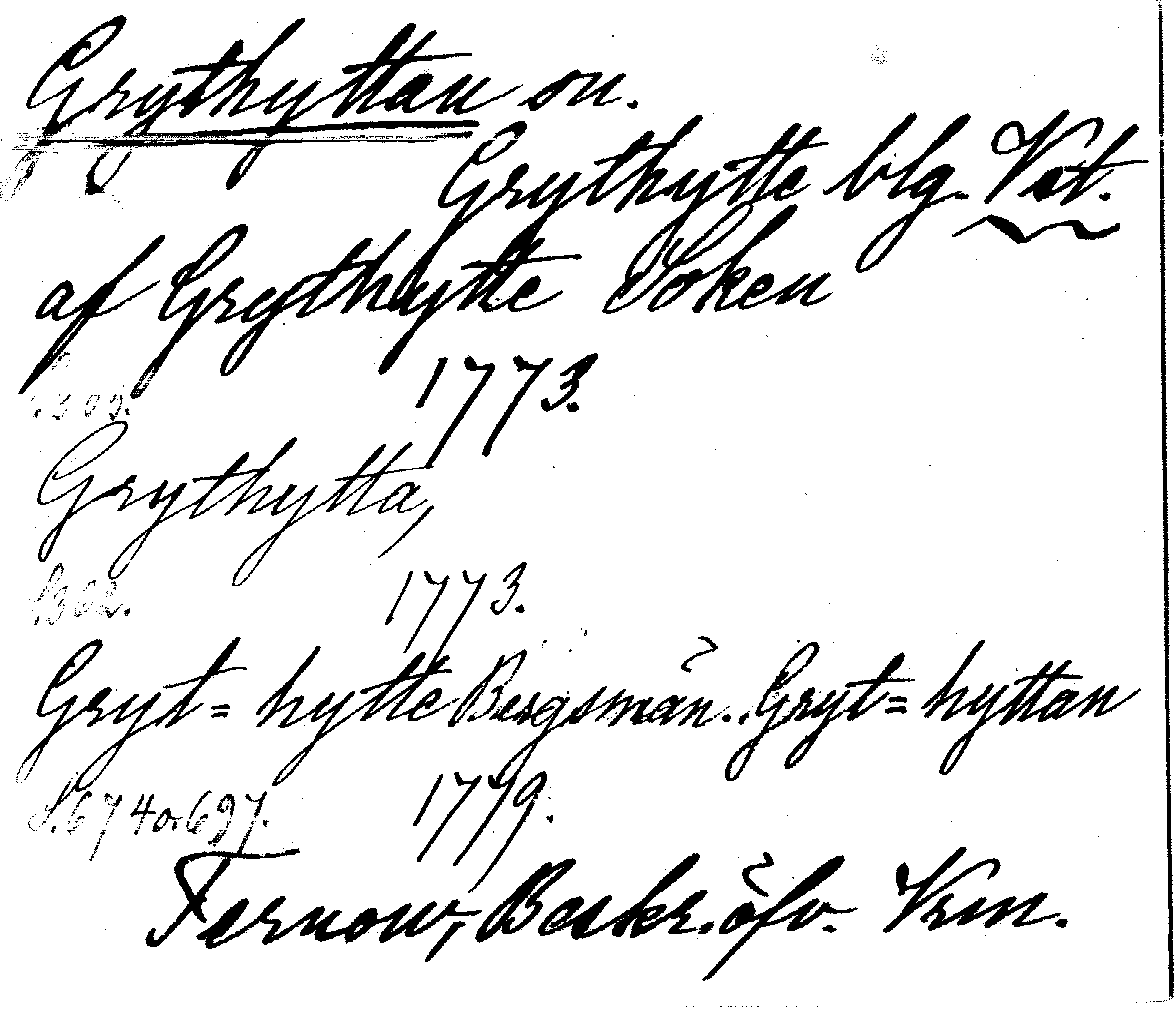 Grythyttan on.
Grythytte blg. Vst.
af Grythytte Soken
1773.
Grythytta,
S.302. 1773.
Gryt=hytte Bergsmän.. Gryt=hyttan
S.674 o. 697. 1779.
Fernow, Beskr. öfv. Vrm.